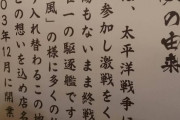 の由来
太平洋戦争に
参加し激戦をく
傷もないまま終戦
一の駆逐艦です
風」の様に多くの
入れ替わるこの
この想いを込め店名
03年12月に開業